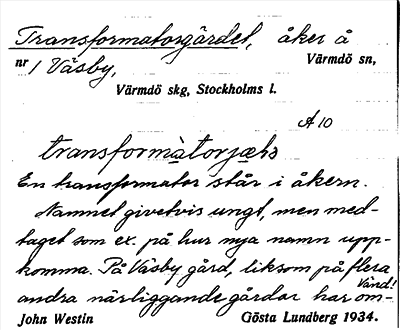 Transformatorgärdet, åker å
nr 1 Väsby, Värmdö sn,
Värmdö skg, Stockholms l.
A 10
En transformator står i åkern.
Namnet givetvis ungt, men med-
taget som ex. på hur nya namn upp-
komma. På Väsby gård, liksom på flera
Vänd!
andra närliggande gårdar har om-
John Westin Gösta Lundberg 1934.